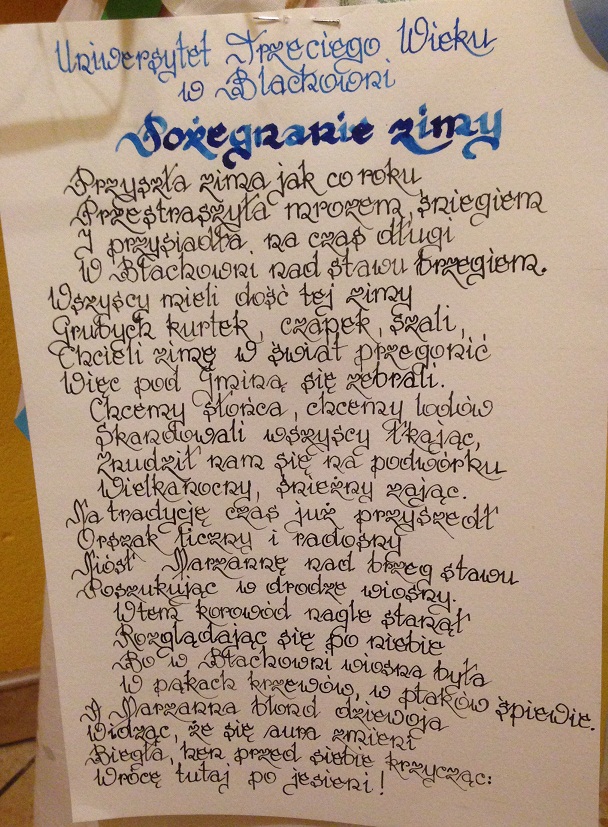 Uniwersytet Trzeciego Wieku
w Blachowni
Pożegnanie zimy
Przyszła zima jak co roku
Przestraszyła mrozem, śniegiem
I przysiadła na czas długi
W Błachowni nad stawu brzegiem.
Wszyscy mieli dość tej zimy
Grubych kurtek, czapek, szali,
Chcieli zimę w świat przegonić
Więc pod Gminą się zebrali.
Chcemy słońca, chcemy lodów
Skandowali wszyscy łkając,
Znudził nam się na podwórku
Wielkanocny, śnieżny zając.
Na tradycję czas już przyszedł
Orszak liczny i radosny
Niósł Marzannę nad brzeg stawu
Poszukując w drodze wiosny.
Wtem korowód nagle stanął
Rozglądając się po niebie
Bo w Błachowni wiosna była
w pąkach krzewów, w ptaków śpiewie.
A Marzanna blond dziewoja
Widząc, że się aura zmieni
Biegła, hen przed siebie krzycząc:
Wrócę tutaj po jesieni!